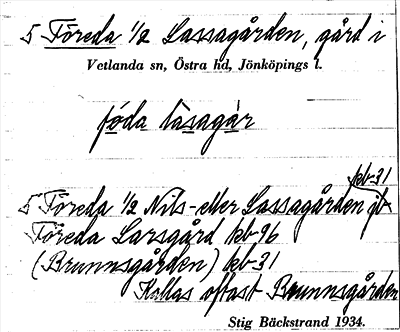 5 Föreda 1/2 Lassagården, gård i
Vetlanda sn, Östra hd, Jönköpings l.
fo̲da la̲sagàr
kb-31
5 Föreda 1/2 Nils- eller Lassagården jb
Föreda Larsgård kb-96
(Brunnsgården) kb-31
Kallas oftast Brunnsgården
Stig Bäckstrand 1934.